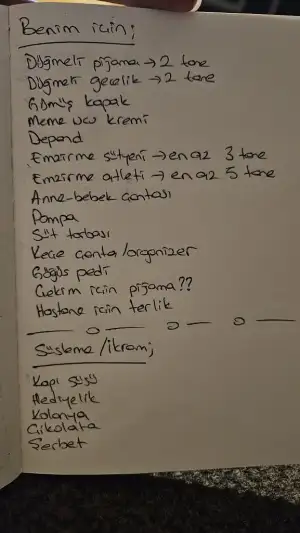 Benim için;
Düğmeli pijama → 2 tane
Düğmeli gecelik → 2 tane
Gümüş kapak
Meme ucu kremi
Depend
Emzirme sütyeni → en az 3 tane
Emzirme atleti → en az 5 tane
Anne-bebek çantası
Pompa
Süt torbası
Keçe çanta/organizer
Göğüs pedi
Çekim için pijama??
Hastane için terlik
Süsleme/ikram;
Kapı süsü
Hediyelik
Kolonya
Çikolata
Şerbet